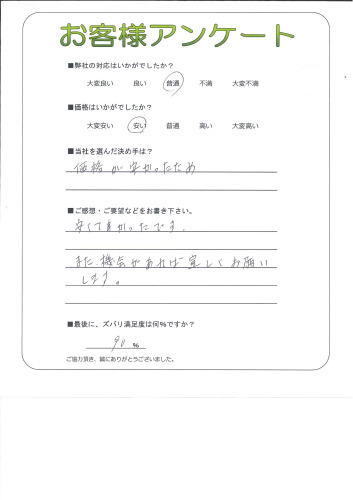 お客様アンケート
■弊社の対応はいかがでしたか？
大変良い 良い 普通 不満 大変不満
■価格はいかがでしたか？
大変安い 安い 普通 高い 大変高い
■当社を選んだ決め手は？
価格が安かったため
■ご感想・ご要望などをお書き下さい。
安くて良かったです.
また、機会があれば宜しくお願い
します。
■最後に、ズバリ満足度は何%ですか？
90 %
ご協力頂き、誠にありがとうございました。